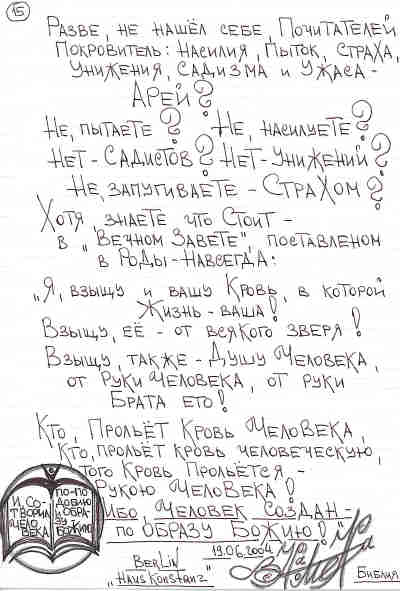 15
РАЗВЕ, НЕ НАШЁЛ СЕБЕ, ПОЧИТАТЕЛЕЙ
ПОКРОВИТЕЛЬ: НАСИЛИЯ, ПЫТОК, СТРАХА,
УНИЖЕНИЯ, САДИЗМА И УЖАСА -
АРЕЙ?
НЕ, ПЫТАЕТЕ? НЕ, НАСИЛУЕТЕ?
НЕТ - САДИСТОВ? НЕТ - УНИЖЕНИЙ?
НЕ, ЗАПУГИВАЕТЕ - СТРАХОМ?
ХОТЯ, ЗНАЕТЕ ЧТО СТОИТ -
В "ВЕЧНОМ ЗАВЕТЕ", ПОСТАВЛЕНОМ
В РОДЫ - НАВСЕГДА:
"Я, ВЗЫЩУ И ВАШУ КРОВЬ, В КОТОРОЙ
ЖИЗНЬ - ВАША!
ВЗЫЩУ, ЕЁ - ОТ ВСЯКОГО ЗВЕРЯ!
ВЗЫЩУ, ТАКЖЕ - ДУШУ ЧЕЛОВЕКА,
ОТ РУКИ ЧЕЛОВЕКА, ОТ РУКИ
БРАТА ЕГО!
КТО, ПРОЛЬЁТ КРОВЬ ЧЕЛОВЕКА,
КТО, ПРОЛЬЁТ КРОВЬ ЧЕЛОВЕЧЕСКУЮ,
ТОГО КРОВЬ ПРОЛЬЁТСЯ -
РУКОЮ ЧЕЛОВЕКА!
ИБО, ЧЕЛОВЕК СОЗДАН -
ПО ОБРАЗУ БОЖИЮ!"
И, СО-
ТВОРИЛ
ЧЕЛО
ВЕКА
ПО-ПО
ДОБИЮ
И ОБРА-
ЗУ
БОЖИЮ
19.06.2004
BERLIN
"HAUS KONSTANZ"
БИБЛИЯ